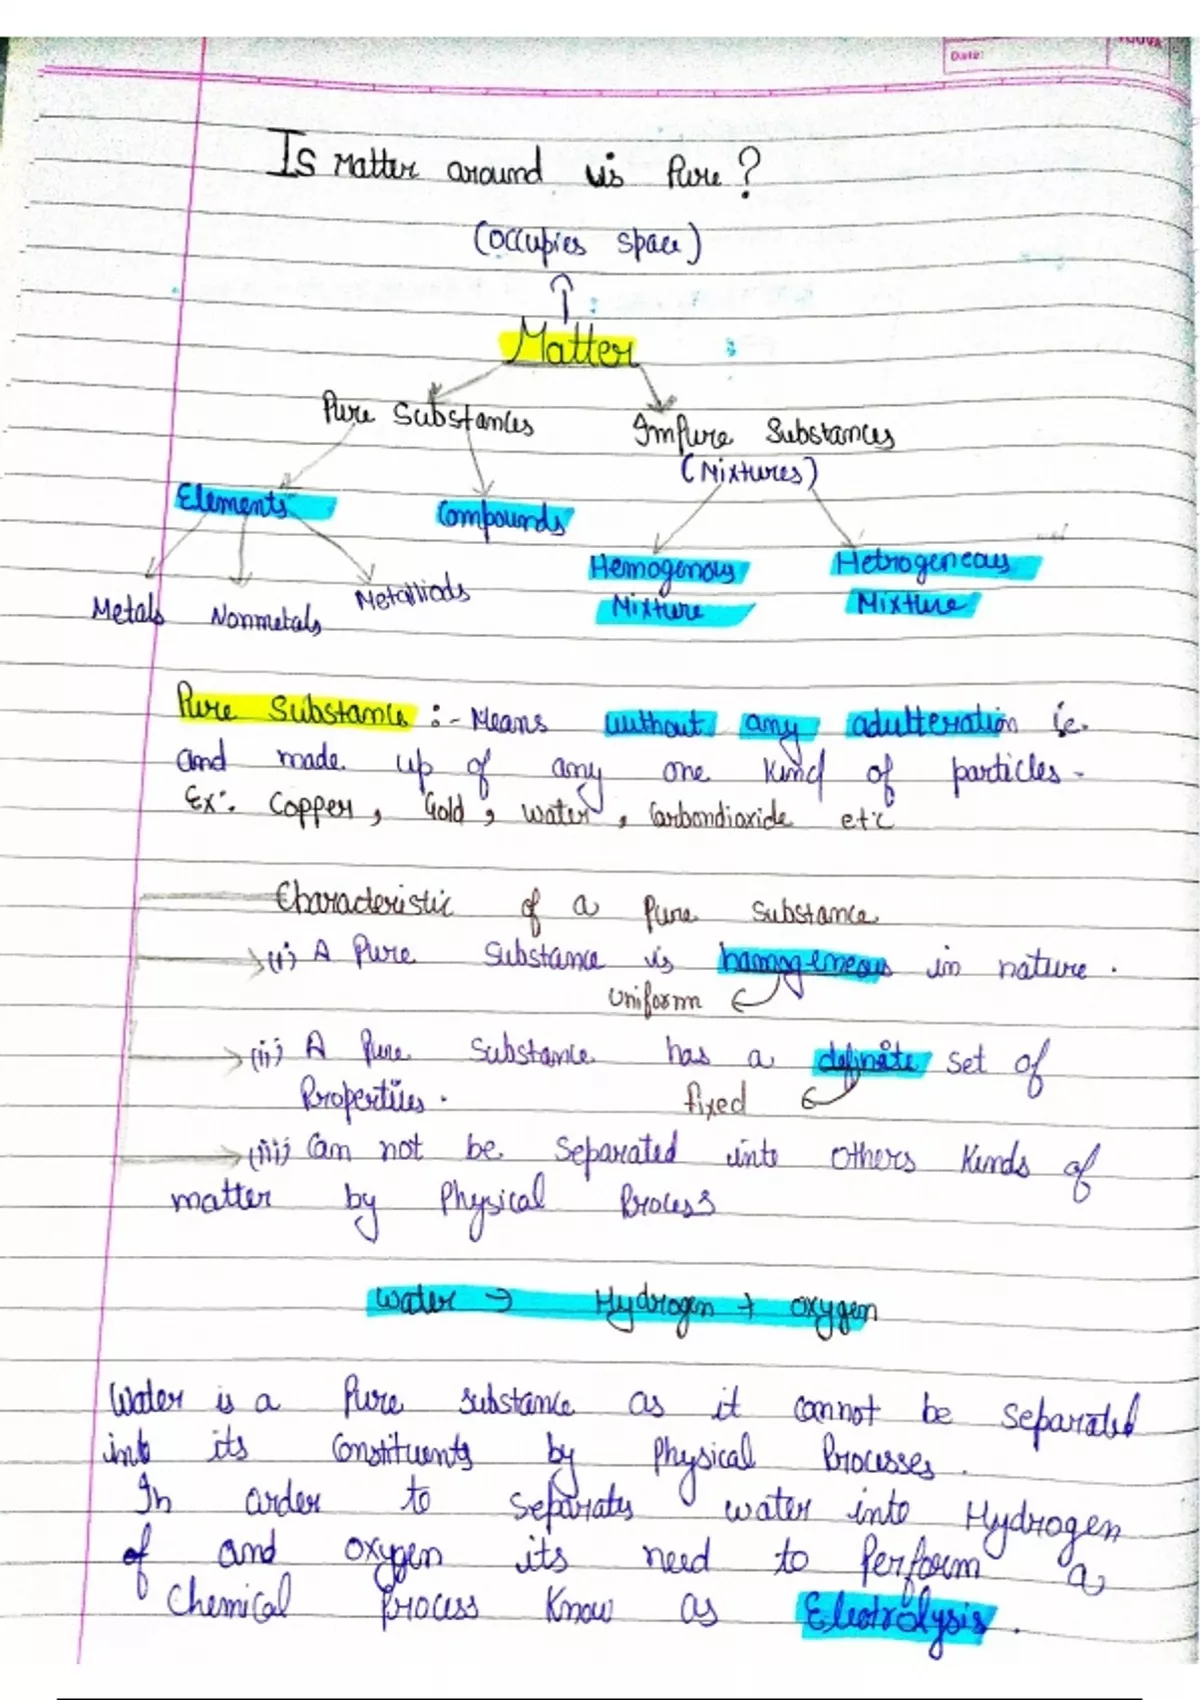 Date:
Is Matter around us Pure?
(occupies space)
Matter
Pure Substances
Impure Substances
(Mixtures)
Elements
Compounds
Hemogenous
Mixture
Hetrogeneous
Mixture
Metals
Nonmetals
Metalliods
Pure Substance :- Means without any adulteration ie.
and made up of any one kind of particles.
Ex: Copper, Gold, water, Carbondioxide etc
Characteristic of a Pure Substance
(i) A Pure Substance is homogeneous in nature.
uniform
(ii) A Pure Substance has a definite set of
Properties.
fixed
(iii) Can not be Separated into others kinds of
matter by Physical Process
Water → Hydrogen + oxygen
Water is a Pure substance as it cannot be separated
into its Constituents by Physical Processes.
In order to separate water into Hydrogen
of and oxygen its need to Perform a
Chemical Process Know as Electrolysis.